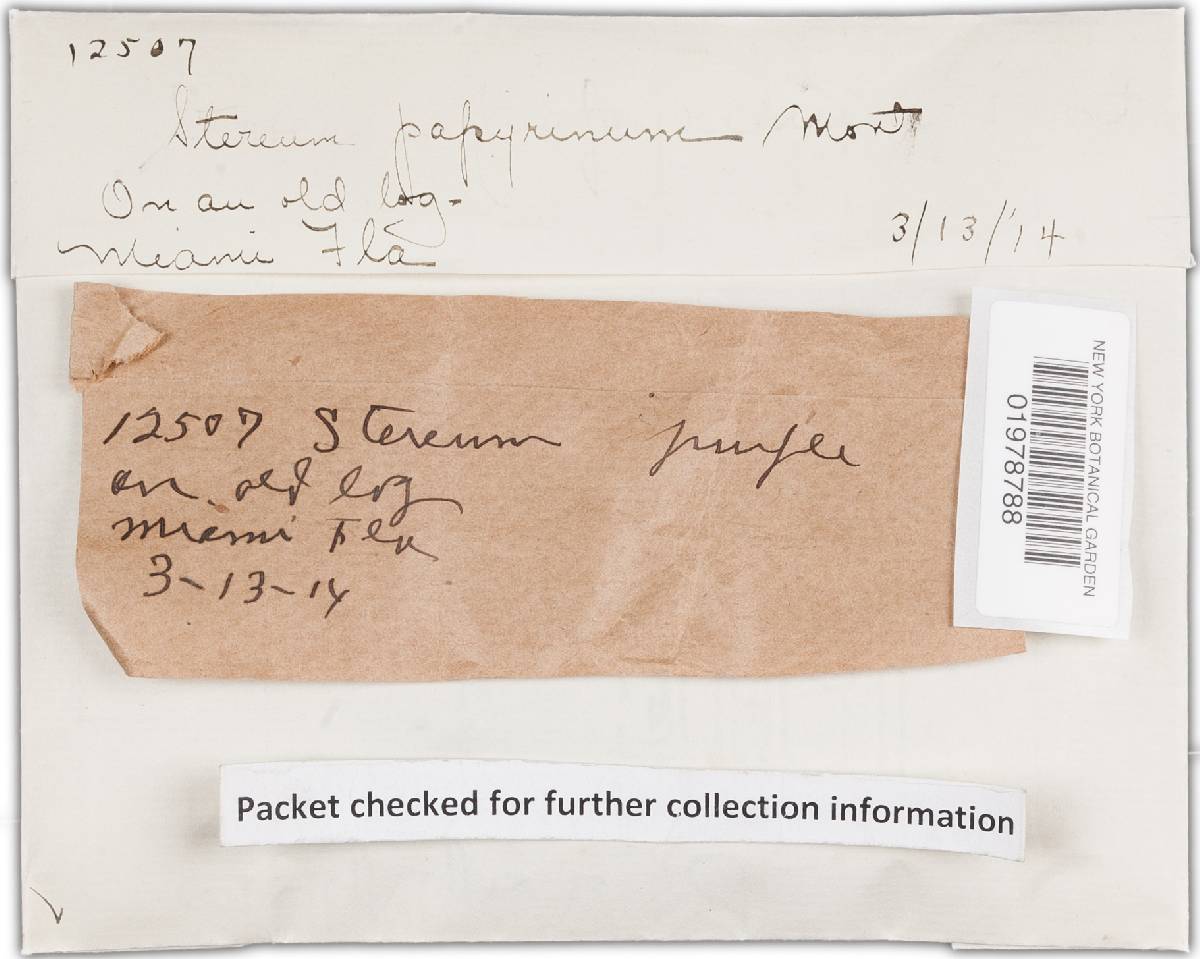 12507
Stereum papyrinum Mont
On an old log-
Miami Fla
3/13/'14
12507 Stereum purple
on old log
Miami Fla
3-13-14
NEW YORK BOTANICAL GARDEN
01978788
Packet checked for further collection information